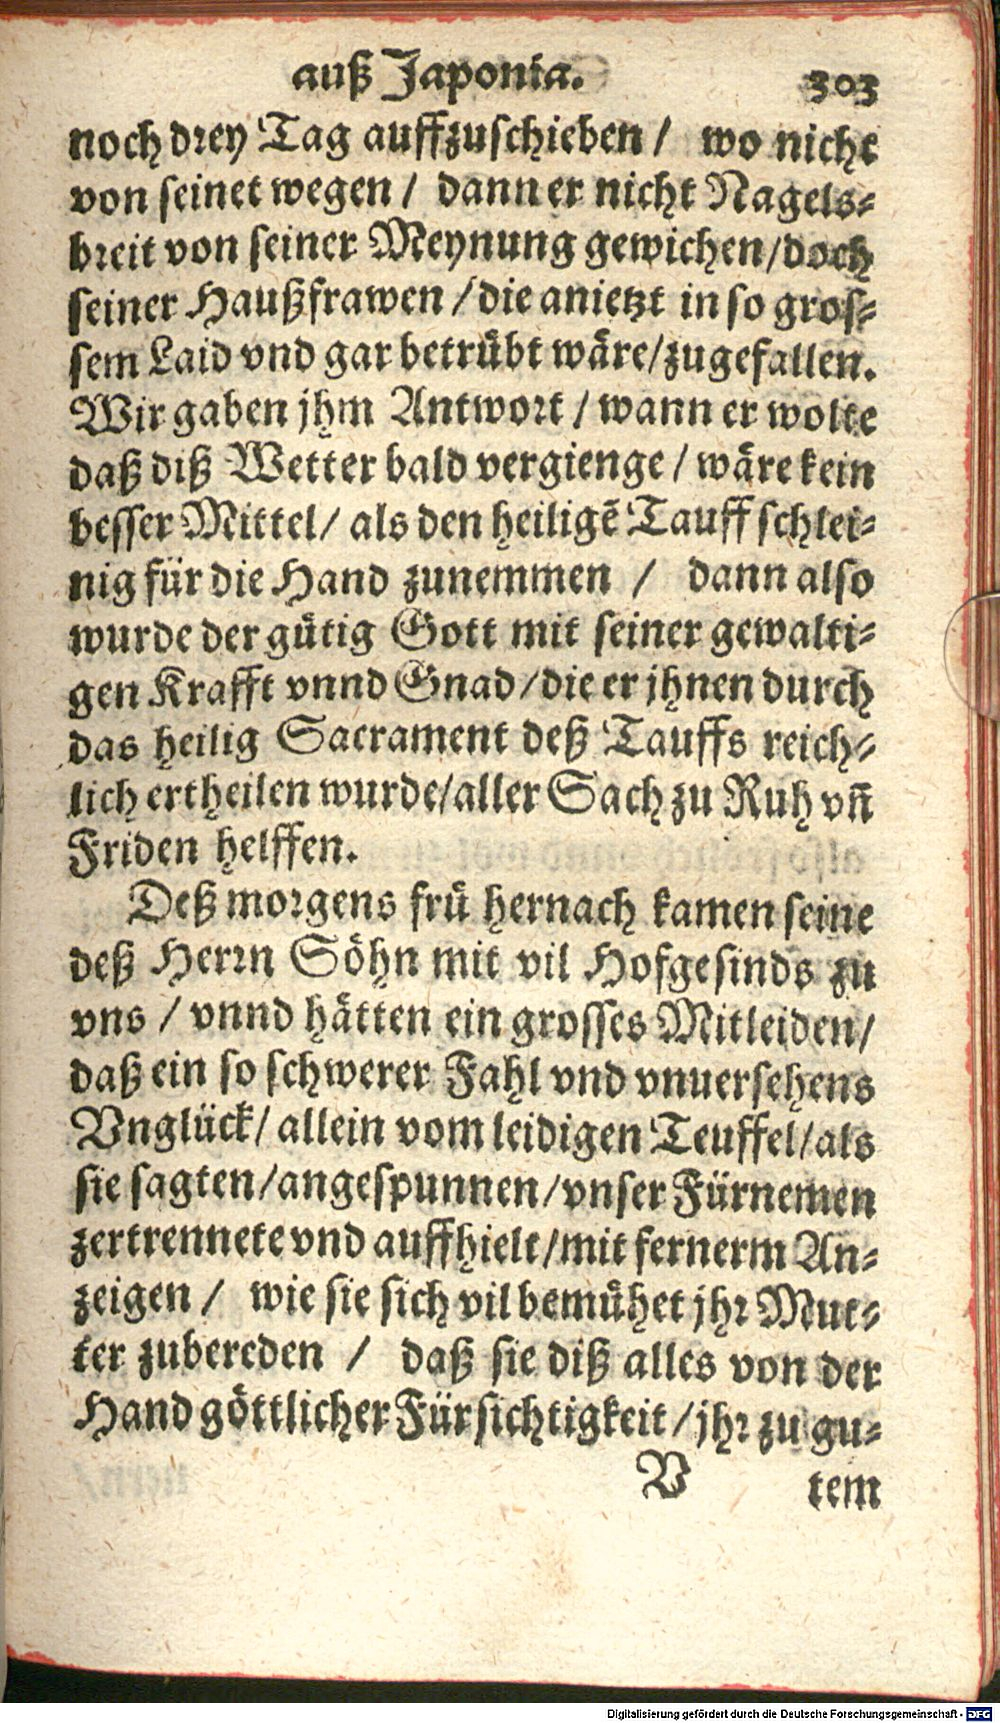 auß Japonia. 303
noch drey Tag auffzuschieben / wo nicht
von seinet wegen / dann er nicht Nagels-
breit von seiner Meynung gewichen/doch
seiner Haußfrawen / die anietzt in so gros-
sem Laid vnd gar betrübt wäre/zugefallen.
Wir gaben jhm Antwort / wann er wolte
daß diß Wetter bald vergienge / wäre kein
besser Mittel/ als den heiligē Tauff schlei-
nig für die Hand zunemmen / dann also
wurde der gütig Gott mit seiner gewalti-
gen Krafft vnnd Gnad/die er jhnen durch
das heilig Sacrament deß Tauffs reich-
lich ertheilen wurde/aller Sach zu Ruh vñ
Friden helffen.
Deß morgens frü hernach kamen seine
deß Herrn Söhn mit vil Hofgesinds zu
vns / vnnd hätten ein grosses Mitleiden/
daß ein so schwerer Fahl vnd vnuersehens
Vnglück/ allein vom leidigen Teuffel/als
sie sagten/angespunnen/vnser Fürnemen
zertrennete vnd auffhielt/mit fernerm An-
zeigen / wie sie sich vil bemühet jhr Mut-
ter zubereden / daß sie diß alles von der
Hand göttlicher Fürsichtigkeit/jhr zu gu-
V tem
Digitalisierung gefördert durch die Deutsche Forschungsgemeinschaft - DFG